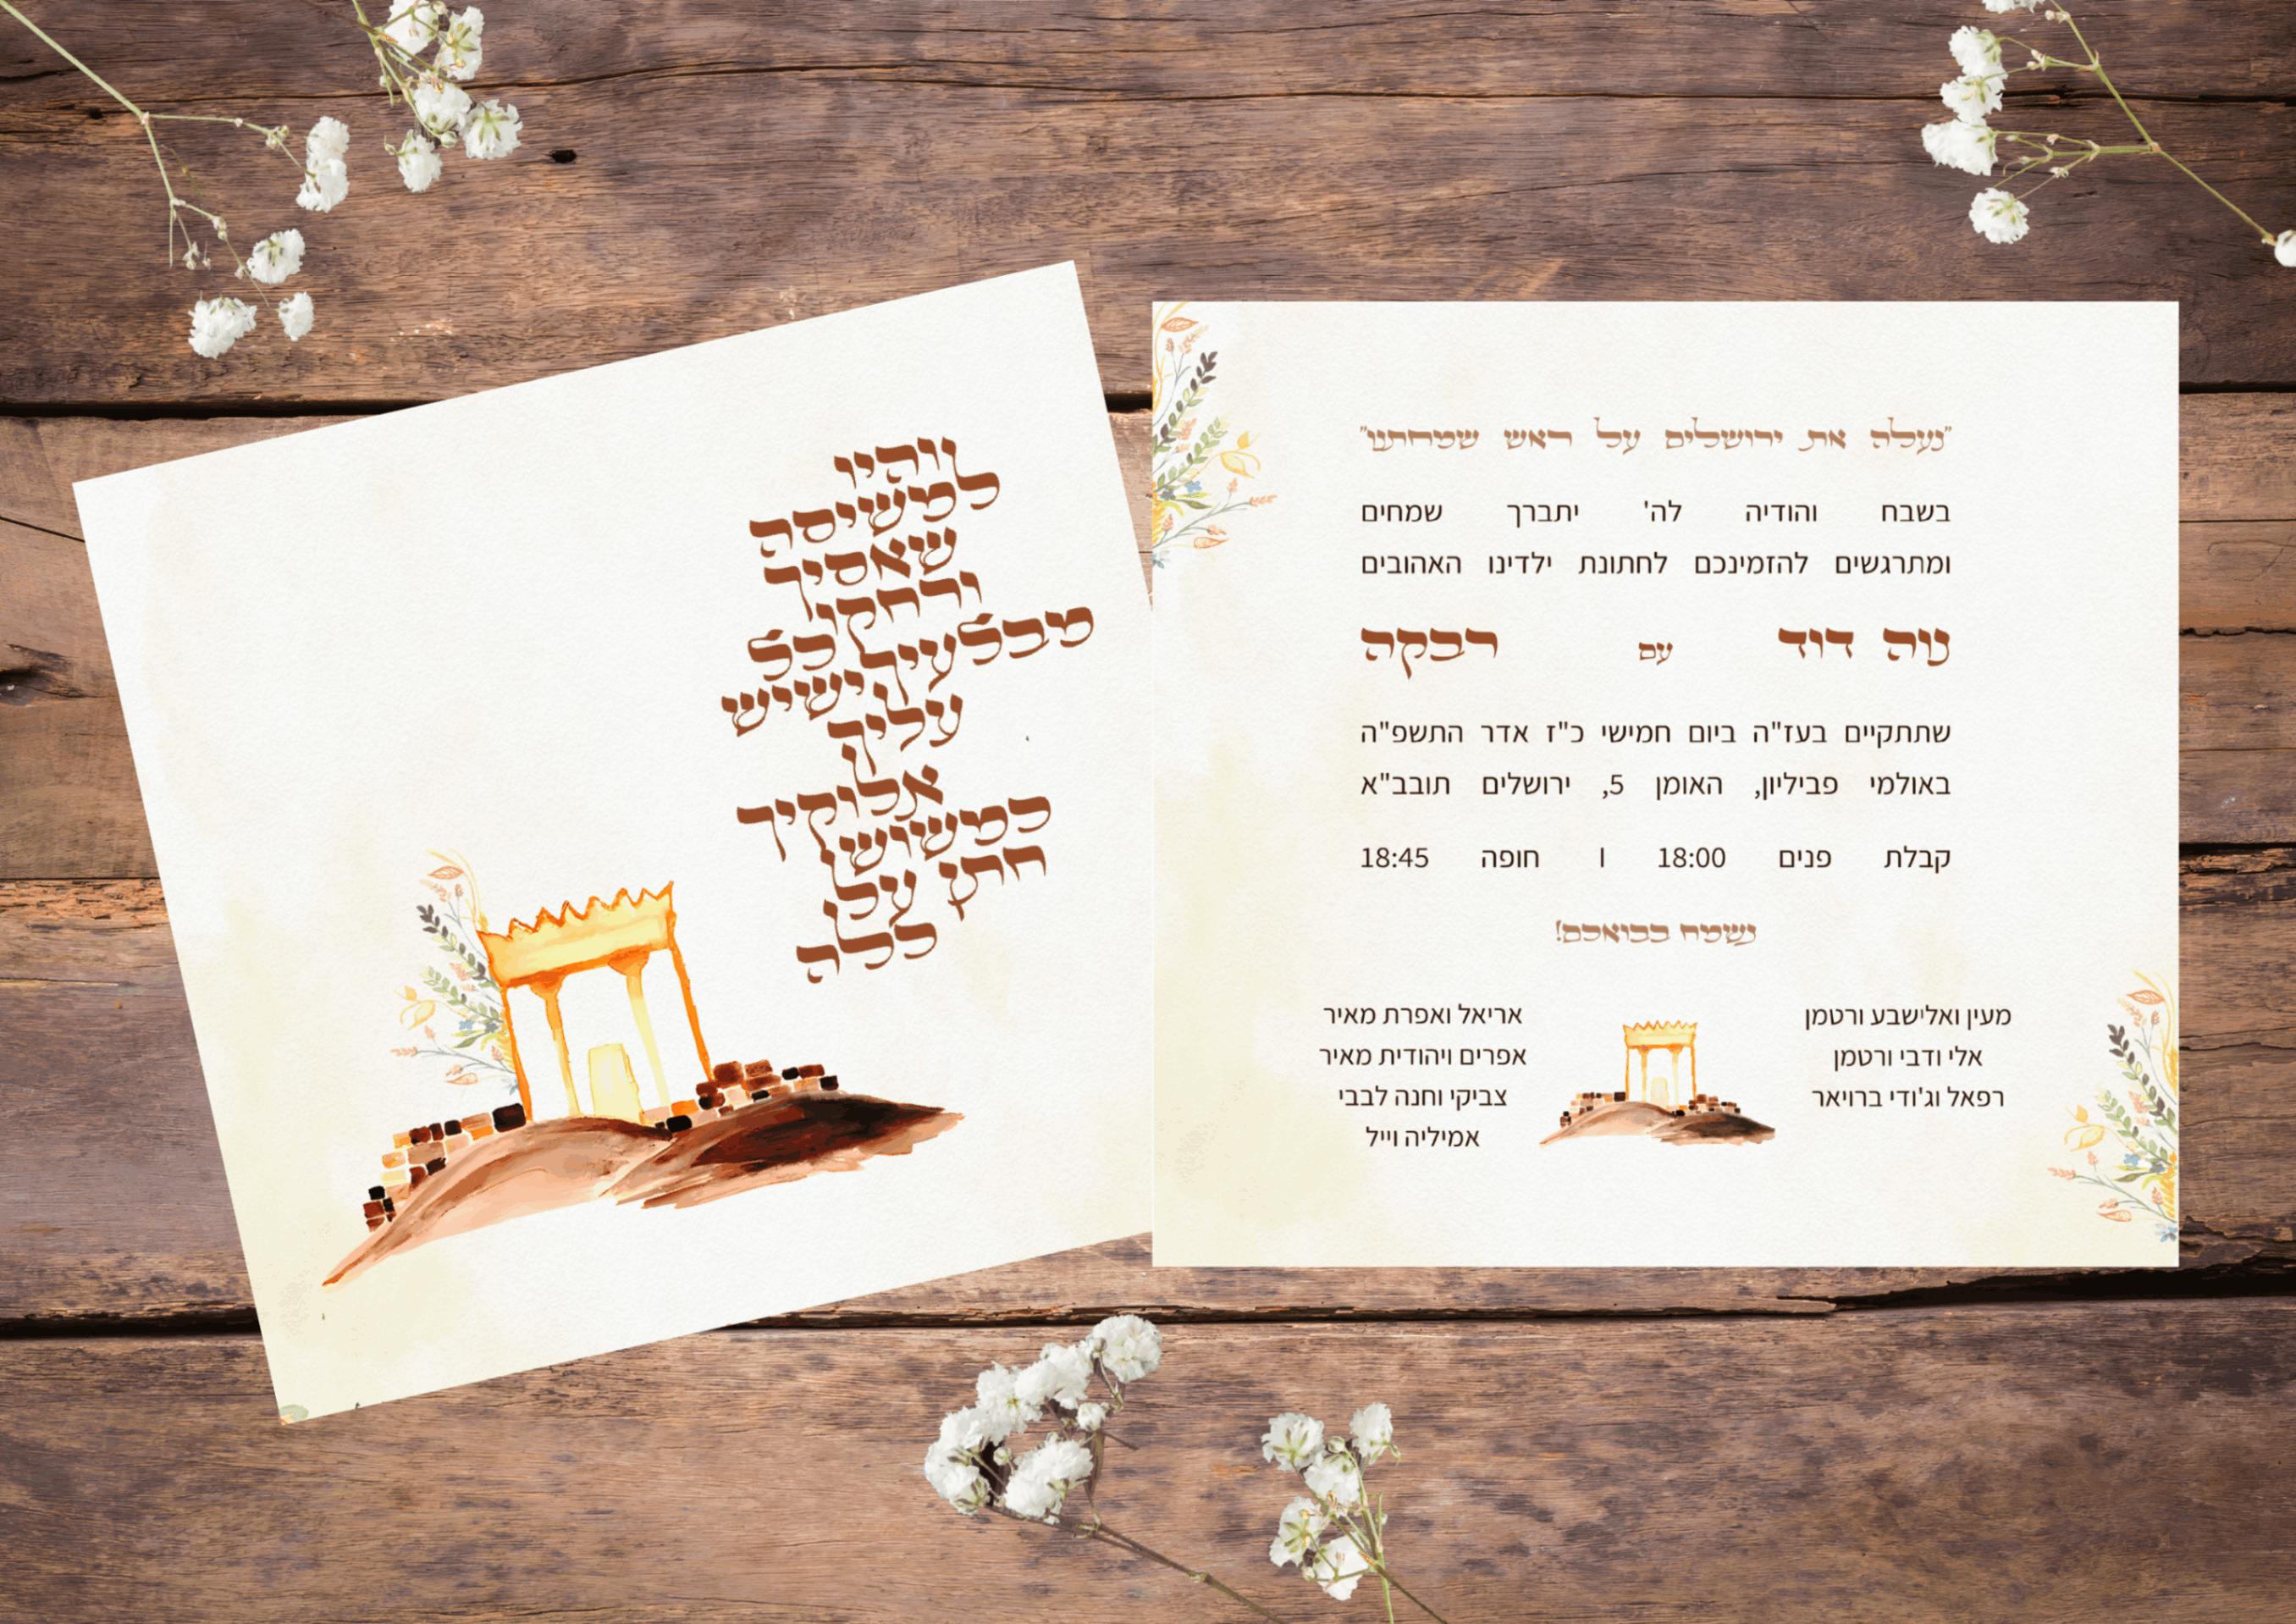 והיו
למשיסה
שאסיך
ורחקו כל
מבלעיך ישיש
עליך
אלוקיך
כמשוש
חתן על
כלה
"נעלה את ירושלים על ראש שמחתנו"
בשבח והודיה לה' יתברך שמחים
ומתרגשים להזמינכם לחתונת ילדינו האהובים
נוה דוד עם רבקה
שתתקיים בעז"ה ביום חמישי כ"ז אדר התשפ"ה
באולמי פביליון, האומן 5, ירושלים תובב"א
קבלת פנים 18:00 | חופה 18:45
נשמח בבואכם!
מעין ואלישבע ורטמן
אלי ודבי ורטמן
רפאל וג'ודי ברויאר
אריאל ואפרת מאיר
אפרים ויהודית מאיר
צביקי וחנה לבבי
אמיליה וייל